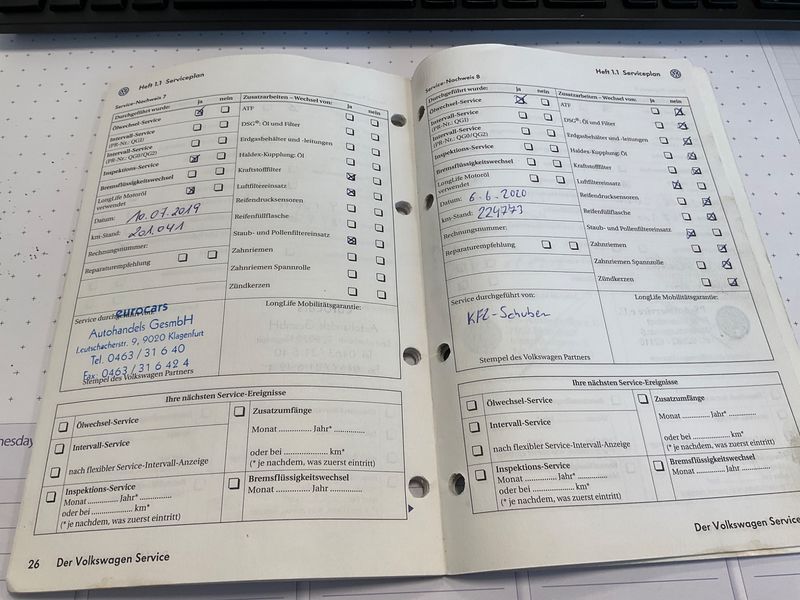 Heft 1.1 Serviceplan
Service-Nachweis 7
Durchgeführt wurde: ja nein
Ölwechsel-Service
Intervall-Service
(PR-Nr.: QG1)
Intervall-Service
(PR-Nr.: QG0/QG2)
Inspektions-Service
Bremsflüssigkeitswechsel
LongLife Motoröl
verwendet
Datum: 10.07.2019
km-Stand: 201.041
Rechnungsnummer:
Reparaturempfehlung
Zusatzarbeiten – Wechsel von: ja nein
ATF
DSG®: Öl und Filter
Erdgasbehälter und -leitungen
Haldex-Kupplung: Öl
Kraftstofffilter
Luftfiltereinsatz
Reifendrucksensoren
Reifenfüllflasche
Staub- und Pollenfiltereinsatz
Zahnriemen
Zahnriemen Spannrolle
Zündkerzen
Service durchgeführt von:
eurocars
Autohandels GesmbH
Leutschacherstr. 9, 9020 Klagenfurt
Tel. 0463 / 31 6 40
Fax. 0463 / 31 6 42 4
Stempel des Volkswagen Partners
LongLife Mobilitätsgarantie:
Ihre nächsten Service-Ereignisse
Ölwechsel-Service
Intervall-Service
nach flexibler Service-Intervall-Anzeige
Inspektions-Service
Monat .............. Jahr* ..............
oder bei .............. km*
(* je nachdem, was zuerst eintritt)
Zusatzumfänge
Monat .............. Jahr* ..............
oder bei .............. km*
(* je nachdem, was zuerst eintritt)
Bremsflüssigkeitswechsel
Monat .............. Jahr ..............
26 Der Volkswagen Service
Heft 1.1 Serviceplan
Service-Nachweis 8
Durchgeführt wurde: ja nein
Ölwechsel-Service
Intervall-Service
(PR-Nr.: QG1)
Intervall-Service
(PR-Nr.: QG0/QG2)
Inspektions-Service
Bremsflüssigkeitswechsel
LongLife Motoröl
verwendet
Datum: 6.6.2020
km-Stand: 224773
Rechnungsnummer:
Reparaturempfehlung
Zusatzarbeiten – Wechsel von: ja nein
ATF
DSG®: Öl und Filter
Erdgasbehälter und -leitungen
Haldex-Kupplung: Öl
Kraftstofffilter
Luftfiltereinsatz
Reifendrucksensoren
Reifenfüllflasche
Staub- und Pollenfiltereinsatz
Zahnriemen
Zahnriemen Spannrolle
Zündkerzen
Service durchgeführt von:
KFZ-Schuber
Stempel des Volkswagen Partners
LongLife Mobilitätsgarantie:
Ihre nächsten Service-Ereignisse
Ölwechsel-Service
Intervall-Service
nach flexibler Service-Intervall-Anzeige
Inspektions-Service
Monat .............. Jahr* ..............
oder bei .............. km*
(* je nachdem, was zuerst eintritt)
Zusatzumfänge
Monat .............. Jahr* ..............
oder bei .............. km*
(* je nachdem, was zuerst eintritt)
Bremsflüssigkeitswechsel
Monat .............. Jahr ..............
Der Volkswagen Service